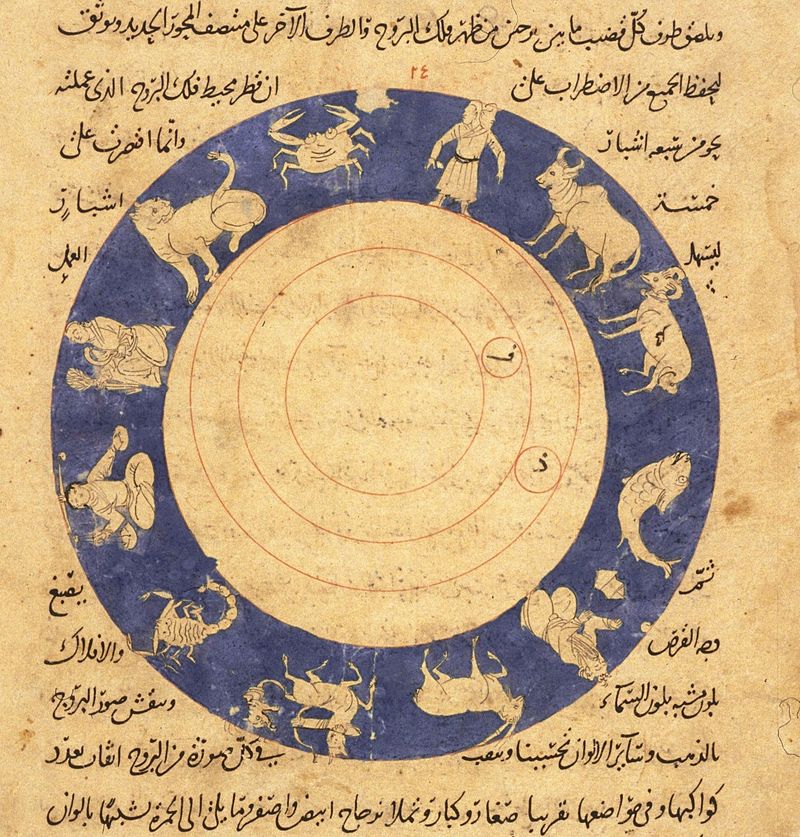 ويلصق طرف كل قضيب ما بين برجين من ظهر فلك البروج والطرف الآخر على منتصف المحور الحديد ويوثق
٢٤
ليحفظ الجميع من الاضطراب على ان قطر محيط فلك البروج الذى عملته
نحو من سبعه اشبار وانما اقتصرت على
خمسة اشبار
ليسهل العمل
ڡا
د
ثم يصبغ
وجه القرص والافلاك
بلون مشبه بلون السماء وينقش صور البروج
بالذهب وسائر الالوان تحسينا ويثقب في كل صورة من البروج اثقاب بعدد
كواكبها وفى مواضعها تقريبا صغار وكبار وتملا زجاج ابيض واصفر وما يلى الى الحمرة بالوان